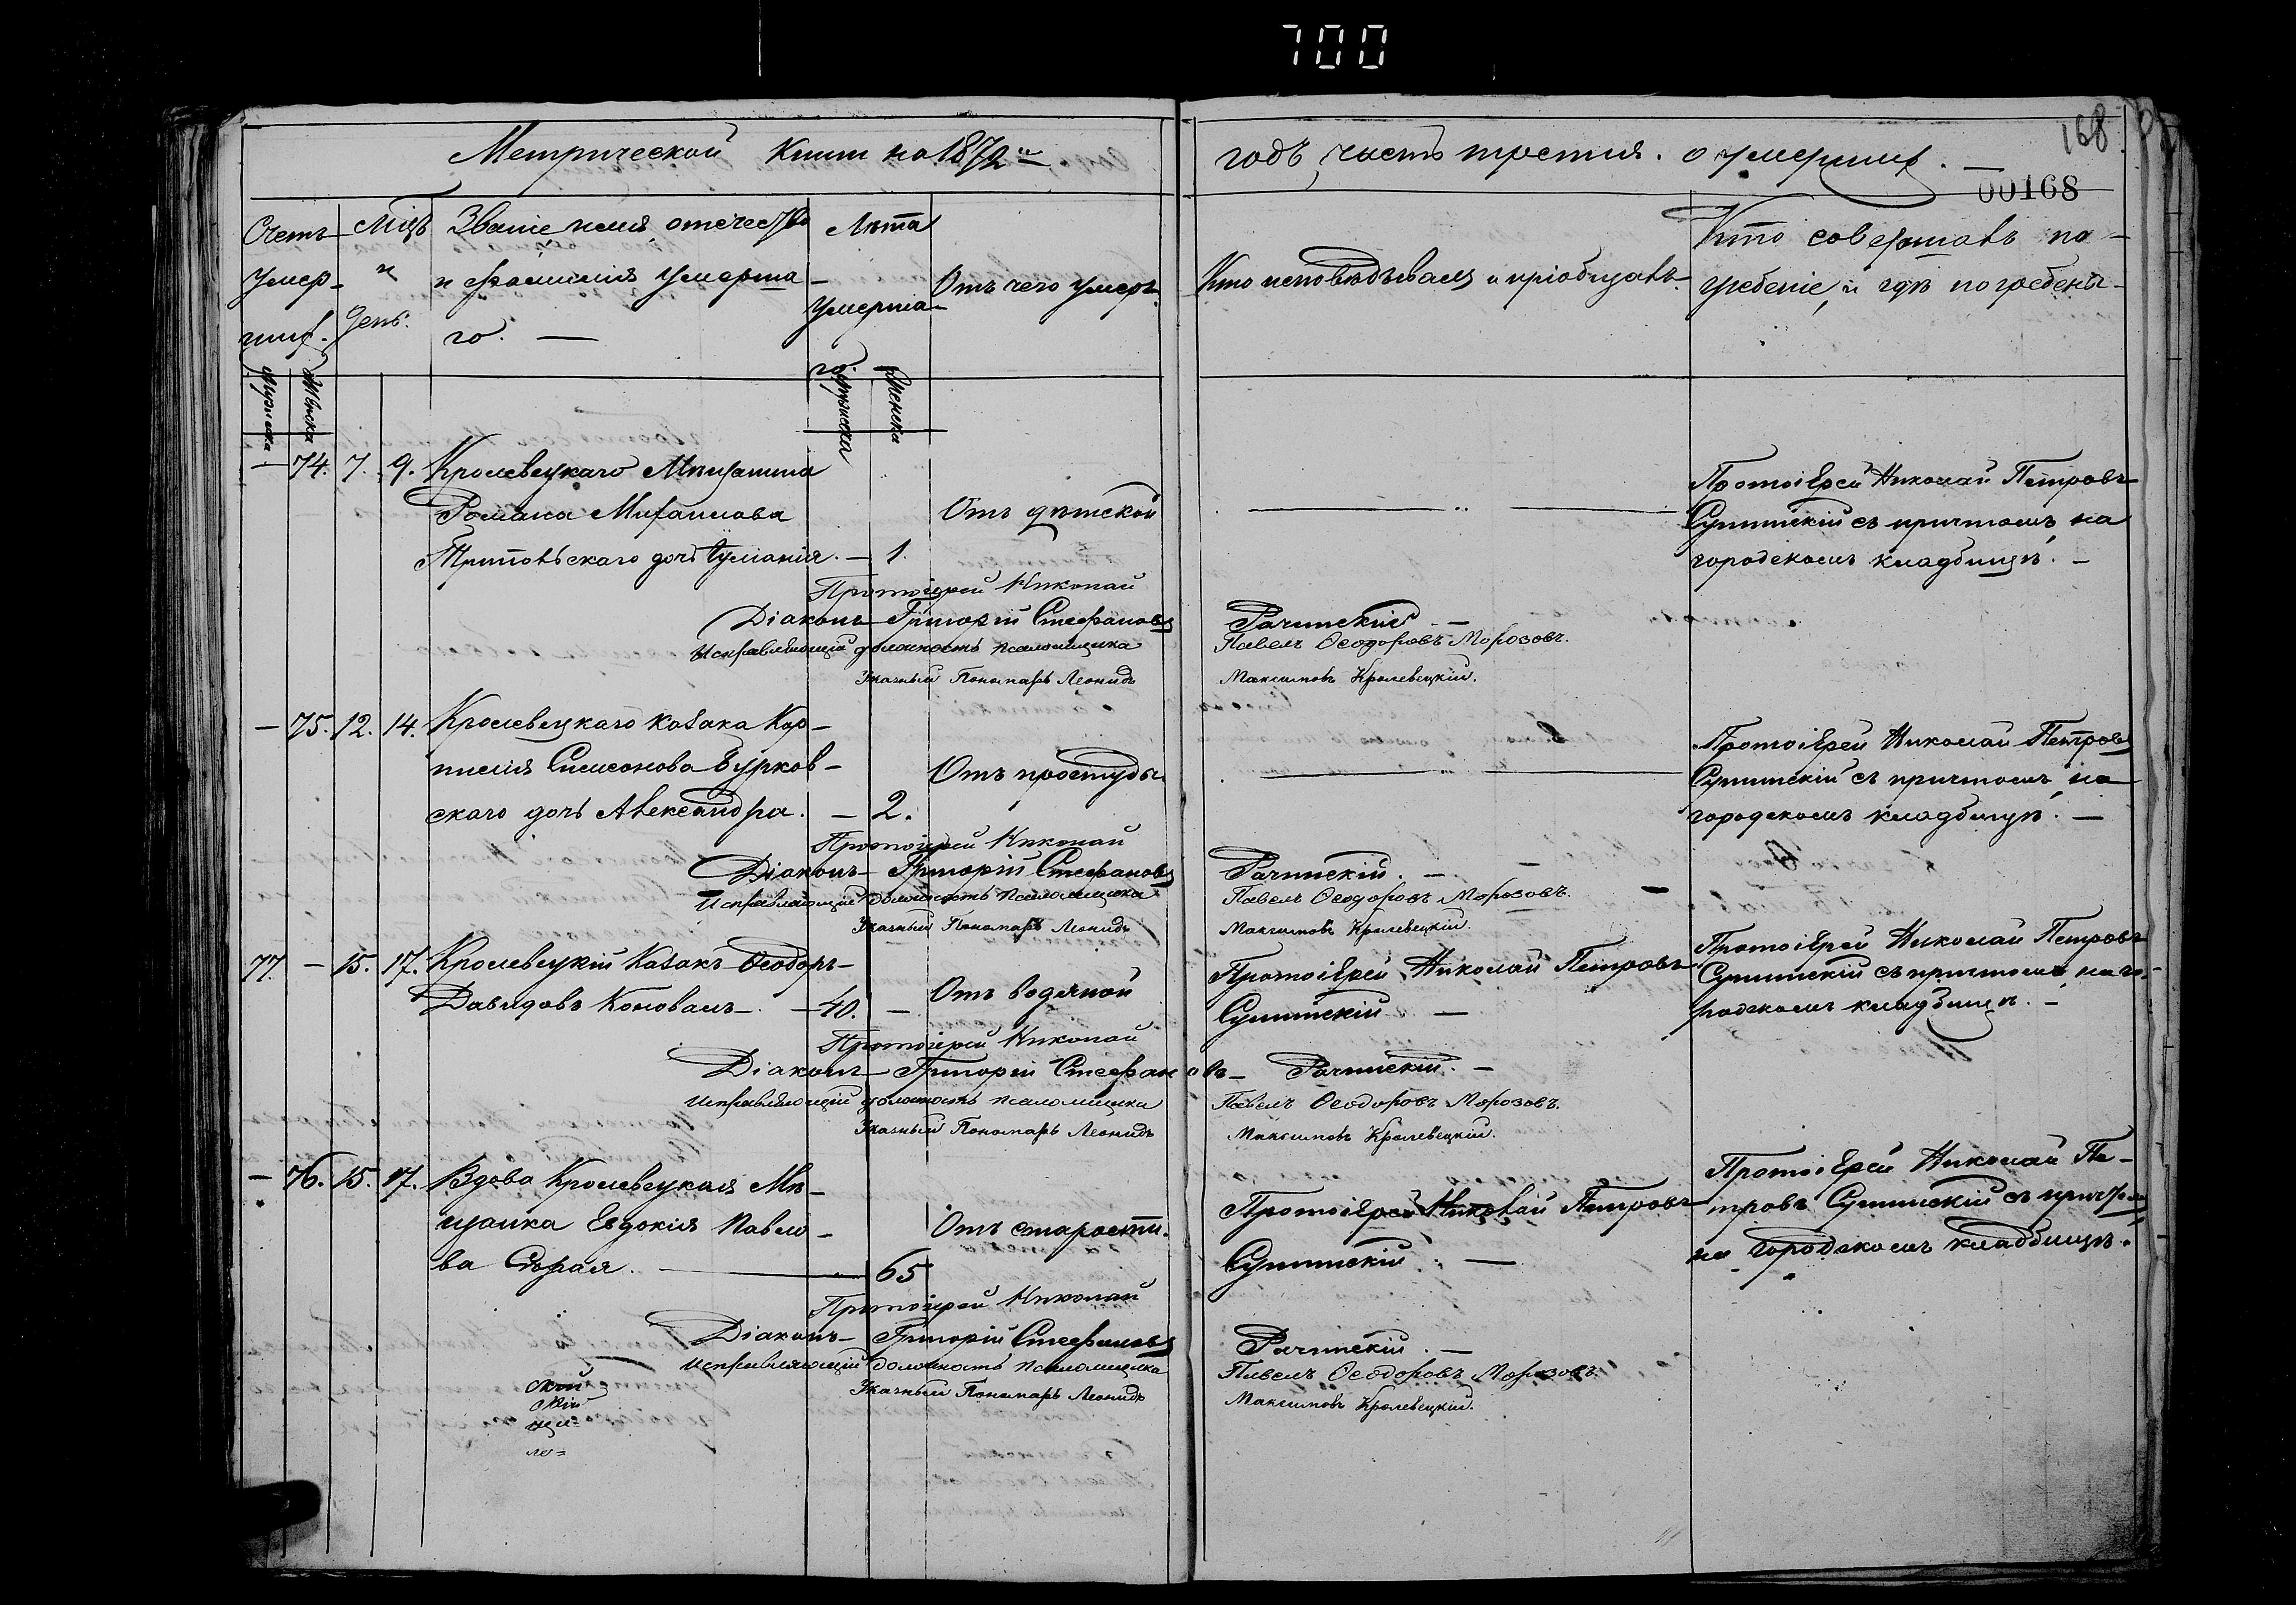 700
168
00168
Метрической книги на 1872й годъ часть третія. о умершихъ.
Счетъ умер- шихъ.
Мцъ и день.
Званіе имя отечество
и фамилія умерша-
го. —
Лѣта
умерша-
го.
Отъ чего умеръ
Кто исповѣдывалъ и пріобщалъ
Кто совершалъ по-
гребеніе, и гдѣ погребены
Мужеска
Женска
Мужеска
Женска
— 74. 7. 9. Кролевецкаго Мѣщанина
Романа Михаилова
дочь 
— 1.
Отъ дѣтской
Протоіерей Николай Петровъ
съ причтомъ, на
городскомъ кладбищѣ. —
Протоіерей Николай
Діаконъ Григорій Стефановъ
Рачинскій —
Исправляющій должность псаломщика Павелъ Ѳеодоровъ Морозовъ.
Указный Пономарь Леонидъ Максимовъ Кролевецкій.
— 75. 12. 14. Кролевецкаго козака Кор-
нилія Симеонова Бурков-
скаго дочь Александра. — 2.
Отъ простуды
Протоіерей Николай Петровъ
съ причтомъ, на
городскомъ кладбищѣ. —
Протоіерей Николай
Діаконъ Григорій Стефановъ
Рачинскій. —
Исправляющій должность псаломщика Павелъ Ѳеодоровъ Морозовъ.
Указный Пономарь Леонидъ Максимовъ Кролевецкій.
77. — 15. 17. Кролевецкій козакъ Ѳеодоръ
Давидовъ Коновалъ — 40. —
Отъ водяной
Протоіерей Николай Петровъ
Протоіерей Николай Петровъ
съ причтомъ, на го-
родскомъ кладбищѣ. —
Протоіерей Николай
Діаконъ Григорій Стефановъ Рачинскій. —
Исправляющій должность псаломщика Павелъ Ѳеодоровъ Морозовъ.
Указный Пономарь Леонидъ Максимовъ Кролевецкій.
— 76. 15. 17. Вдова Кролевецкая Мѣ-
щанка Евдокія Павло-
ва — 65
Отъ старости.
Протоіерей Николай Петровъ
Протоіерей Николай Пе-
тровъ съ причтомъ
на городскомъ кладбищѣ.
Протоіерей Николай
Діаконъ Григорій Стефановъ
Рачинскій. —
Исправляющій должность псаломщика Павелъ Ѳеодоровъ Морозовъ.
Указный Пономарь Леонидъ Максимовъ Кролевецкій.